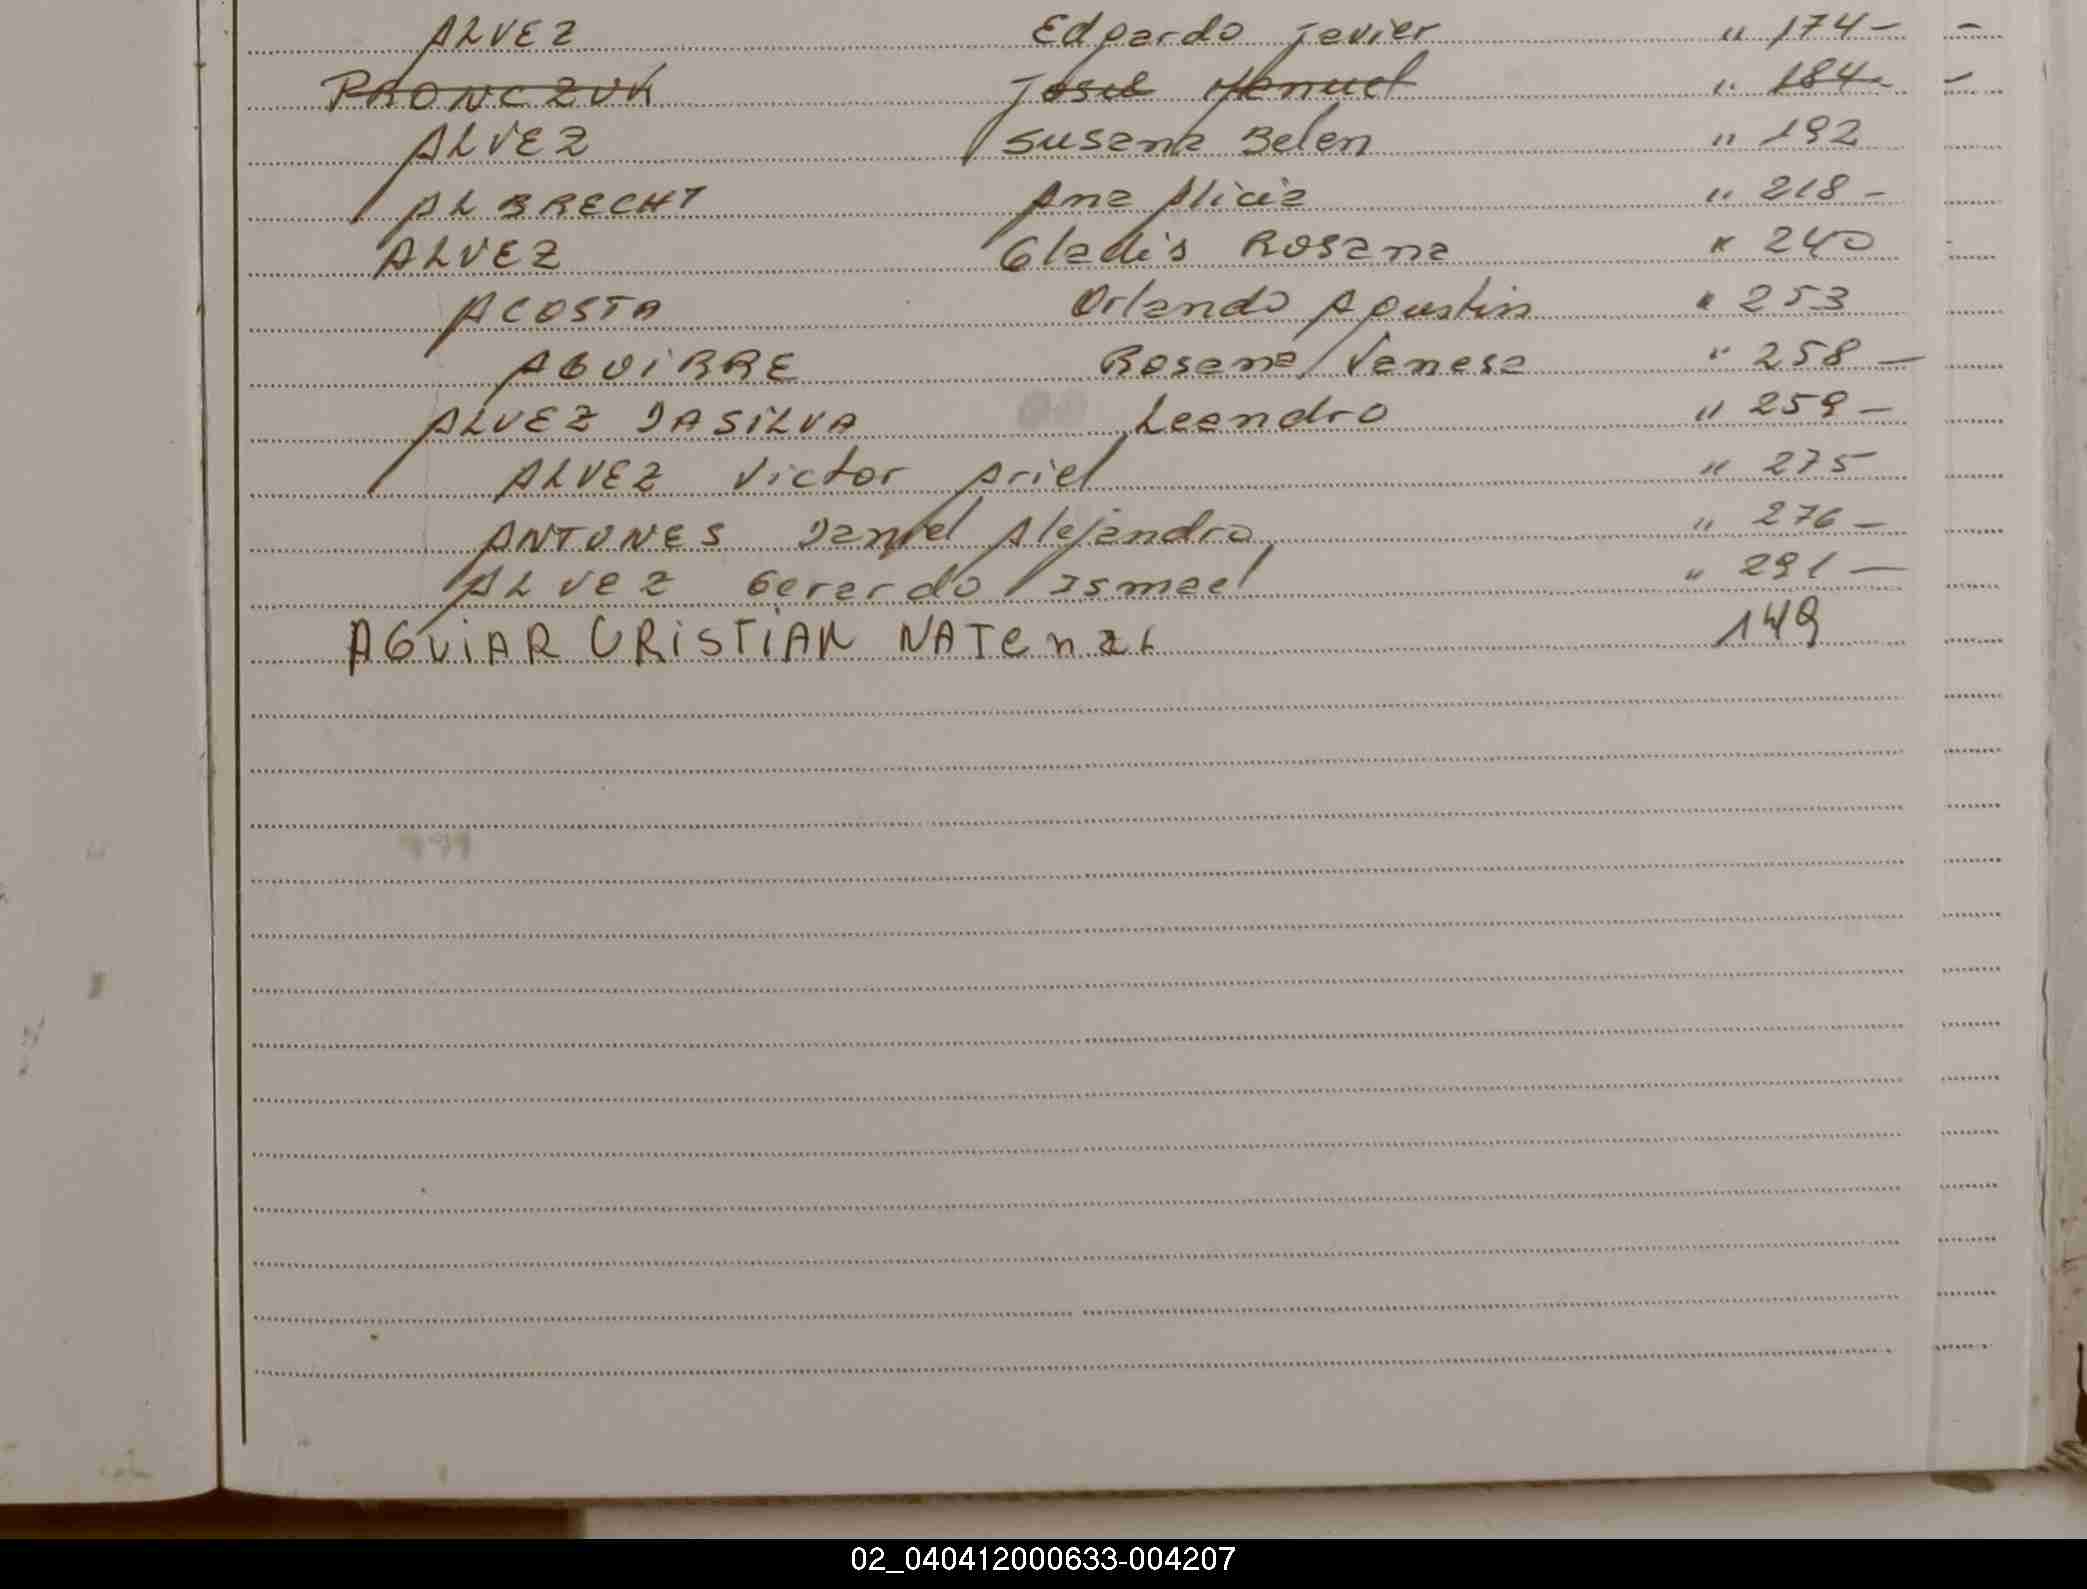 ALVEZ Edgardo Javier " 174 - -
PRONCZUK José Manuel " 184 - -
ALVEZ Susana Belen " 192
ALBRECHT Ana Alicia " 218 -
ALVEZ Gladis Rosana " 240
ACOSTA Orlando Agustin " 253
AGUiRRE Rosana Vanesa " 258 -
ALVEZ DASiLVA Leandro " 259 -
ALVEZ Victor Ariel " 275
ANTUNES Daniel Alejandro " 276 -
ALVEZ Gerardo Ismael " 291 -
AGUiAR CRiSTiAN 149
02_040412000633-004207